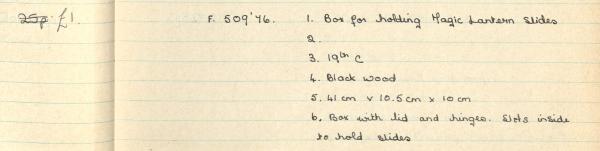 25p £1. F. 509'76. 1. Box for holding Magic Lantern Slides
2.
3. 19th C
4. Black wood
5. 41 cm v 10.5 cm x 10 cm
6. Box with lid and hinges. Slots inside
to hold slides